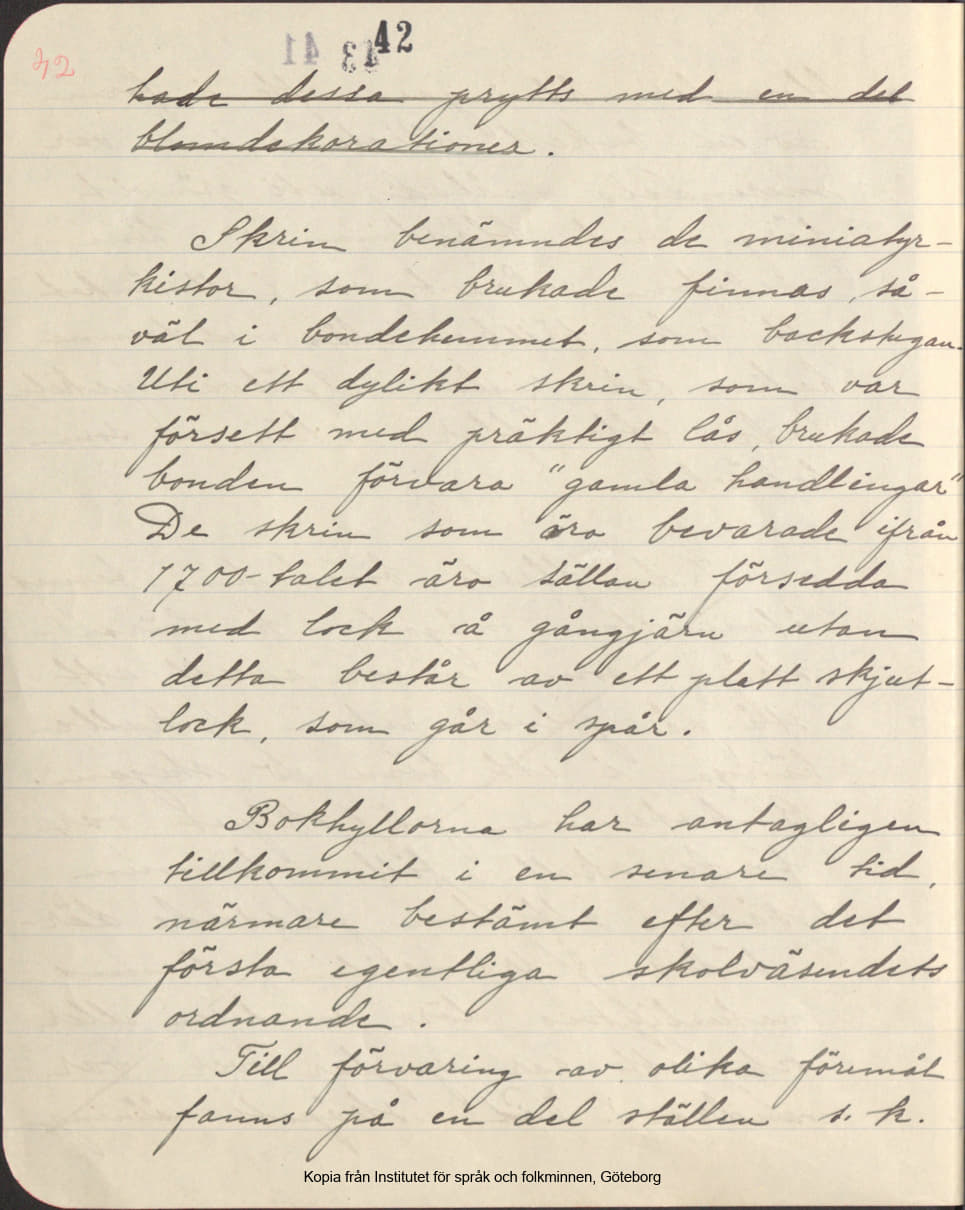 42
41 43 42
hade dessa prytts med en del
blomdekorationer.
Skrin benämndes de miniatyr-
kistor, som brukade finnas, så-
väl i bondehemmet, som backstugan.
Uti ett dylikt skrin, som var
försett med präktigt lås, brukade
bonden förvara "gamla handlingar"
De skrin som äro bevarade ifrån
1700-talet äro sällan försedda
med lock å gångjärn utan
detta består av ett platt skjut-
lock, som går i spår.
Bokhyllorna har antagligen
tillkommit i en senare tid,
närmare bestämt efter det
första egentliga skolväsendets
ordnande.
Till förvaring av olika föremål
fanns på en del ställen s. k.
Kopia från Institutet för språk och folkminnen, Göteborg